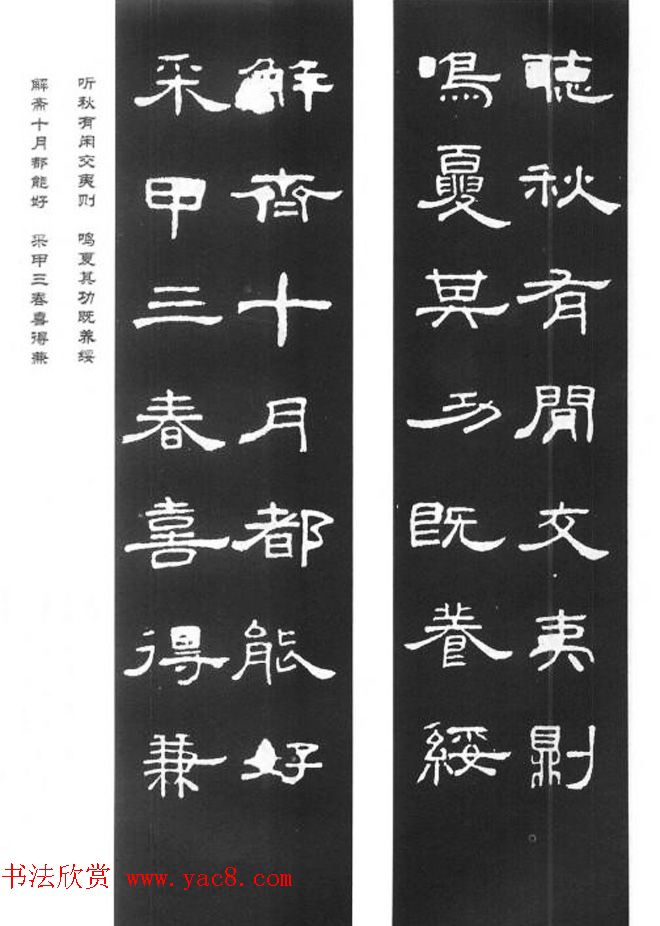 聽秋有閒交夷則
鳴夏其功既養綏
解齊十月都能好
采甲三春喜得兼
听秋有闲交夷则 鸣夏其功既养绥
解斋十月都能好 采甲三春喜得兼
书法欣赏 www.yac8.com